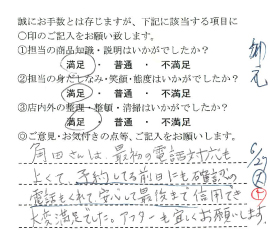 誠にお手数とは存じますが、下記に該当する項目に
○印のご記入をお願い致します。
①担当の商品知識・説明はいかがでしたか？
満足 ・ 普通 ・ 不満足
②担当の身だしなみ・笑顔・態度はいかがでしたか？
満足 ・ 普通 ・ 不満足
③店内外の整理・整頓・清掃はいかがでしたか？
満足 ・ 普通 ・ 不満足
◎ご意見・お気付きの点等、ご記入をお願いします。
角田さんは、最初の電話対応も
よくて、予約してる前日にも確認の
電話もくれて、安心して最後まで信用でき
大変満足でした。アフターも宜しくお願いします。
6/27